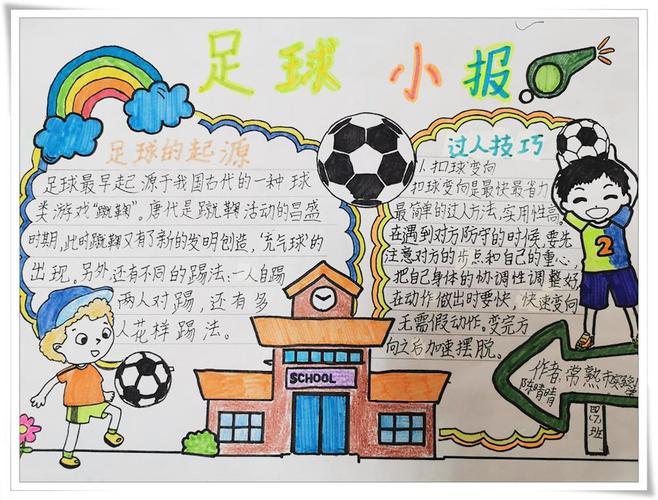 足球小报
足球的起源
足球最早起源于我国古代的一种球
类游戏“蹴鞠”。唐代是蹴鞠活动的昌盛
时期,此时蹴鞠又有了新的发明创造,“充气球”的
出现。另外,还有不同的踢法:一人自踢
两人对踢,还有多
人花样踢法。
过人技巧
1.扣球变向
扣球变向是最快最省力
最简单的过人方法,实用性高。
在遇到对方防守的时候,要先
注意对方的步点和自己的重心
把自己身体的协调性调整好
在动作做出时要快,快速变向
无需假动作。变完方
向之后加速摆脱。
SCHOOL
2
作者:常熟市实验
陈晴晴
班